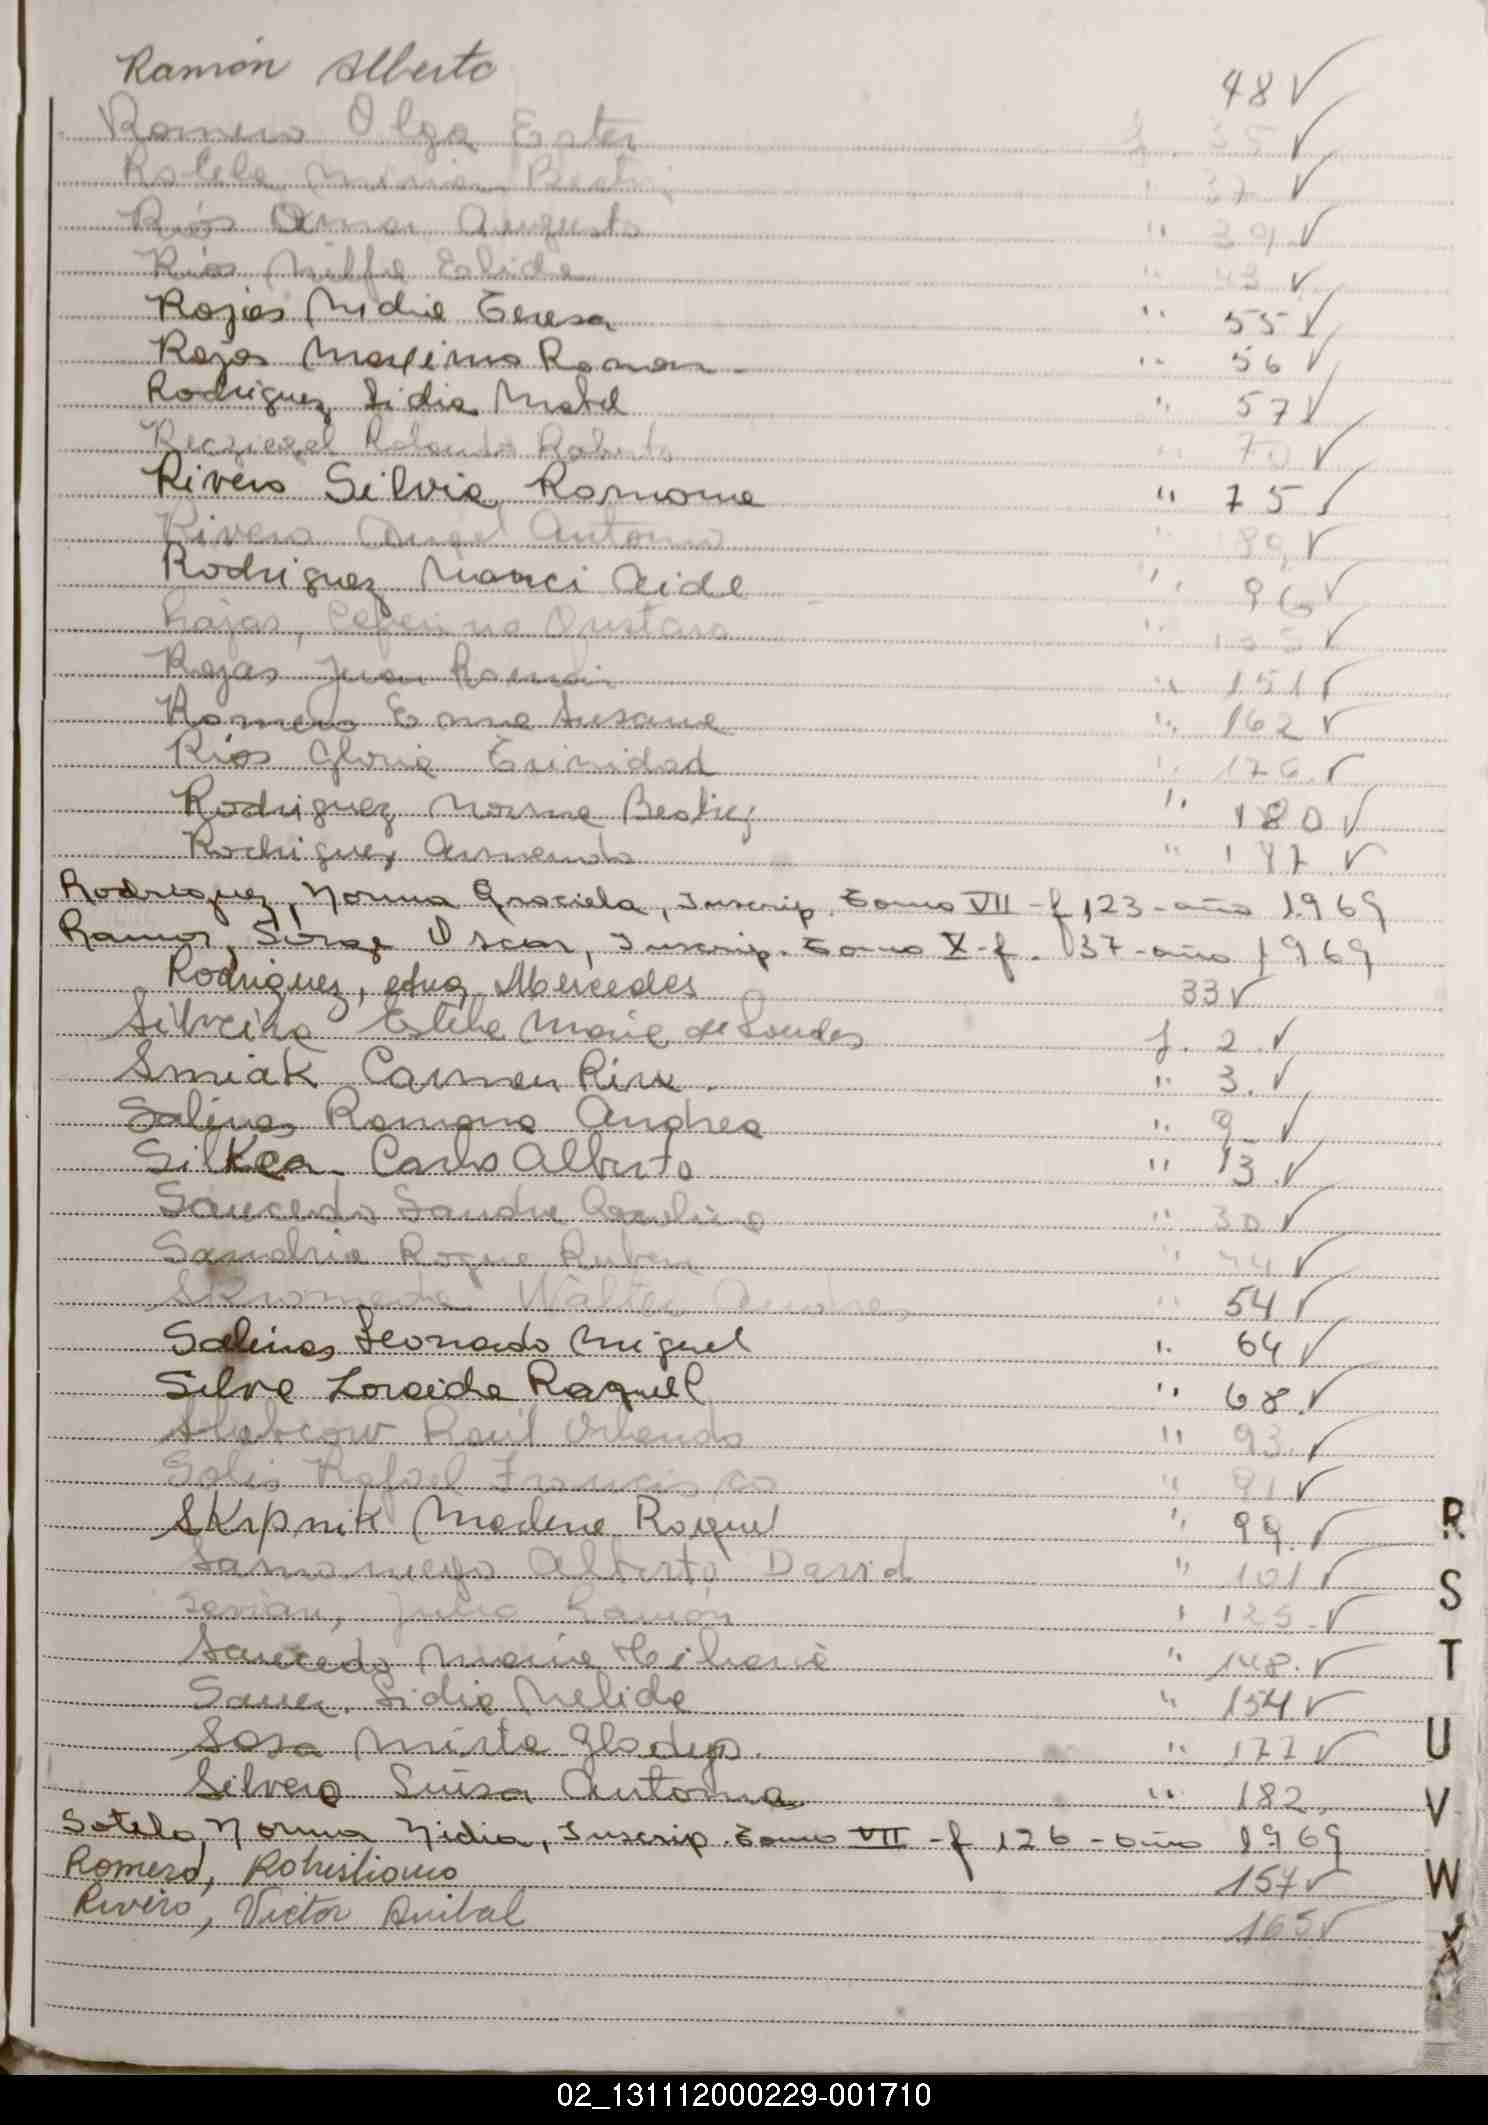 Ramón Alberto 48 ✓
Romero Olga Ester f. 35 ✓
Rotela Miriam Beatriz " 37 ✓
Ríos Omar Augusto " 39 ✓
Ríos Nilfa Elida " 43 ✓
Rojas Nidia Teresa " 55 ✓
Rojas Maximo Roman " 56 ✓
Rodriguez Lidia Mabel " 57 ✓
Rolando Roberto " 70 ✓
Rivero Silvia Ramona " 75 ✓
Rivero Angel Antonio " 89 ✓
Rodriguez Nanci Aide " 96 ✓
Rojas, Ceferino Gustavo " ✓
Rojas Juan Ramón " 151 ✓
Romero Erma Susana " 162 ✓
Ríos Gloria Trinidad " 176 ✓
Rodriguez Norma Beatriz " 180 ✓
Rodriguez Armando " 187 ✓
Rodriguez, Norma Graciela, Inscrip. Tomo VII - f 123 - año 1969
Ramos, Oscar, Inscrip. Tomo X - f. 137 - año 1969
Rodriguez, Mercedes 33 ✓
Silveira Estela Maria de Lourdes f. 2 ✓
Smiak Carmen " 3. ✓
Salinas Ramona Andrea " 9 ✓
Carlos Alberto " 13 ✓
Saucedo Sandra " 30 ✓
Sanabria Roque Ruben " 44 ✓
Walter Andres " 54 ✓
Salinas Leonardo Miguel " 64 ✓
Silva Zoraida Raquel " 68. ✓
Raúl Orlando " 93. ✓
Solis Rafael Francisco " 91 ✓
Skrpnik Raquel " 99. ✓
Samaniego Alberto David " 101 ✓
Julio Ramón " 125 ✓
Saucedo María " 148. ✓
Sauer Lidia Nelida " 154 ✓
Sosa Mirta Gladys. " 177 ✓
Silvero Luisa Antonia " 182.
Sotelo, Norma Nidia, Inscrip. Tomo VII - f 126 - año 1969
Romero, Robustiano 157 ✓
Rivero, Victor Anibal 165 ✓
R
S
T
U
V
W
X
02_131112000229-001710